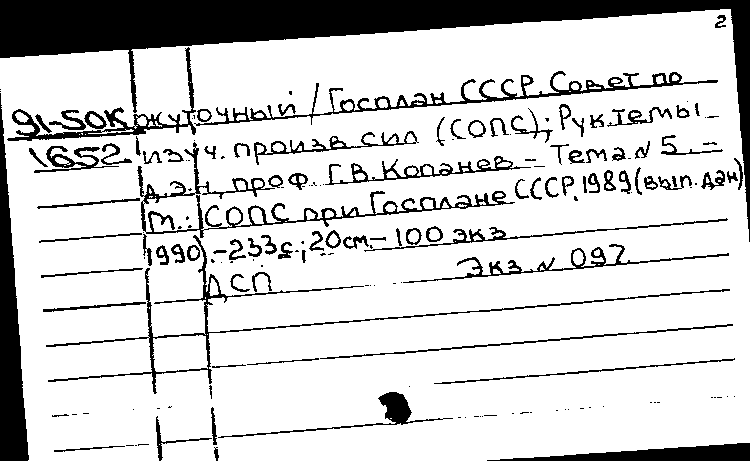 2
91-50К жуточный / Госплан СССР. Совет по
1652 изуч. произв сил (СОПС); Рук.темы
д.э.н., проф. Г.В. Копанев – Тема N 5. –
М.: СОПС при Госплане СССР, 1989 (вып. дан)
1990). – 233с; 20см. – 100 экз
ДСП Экз. N 097